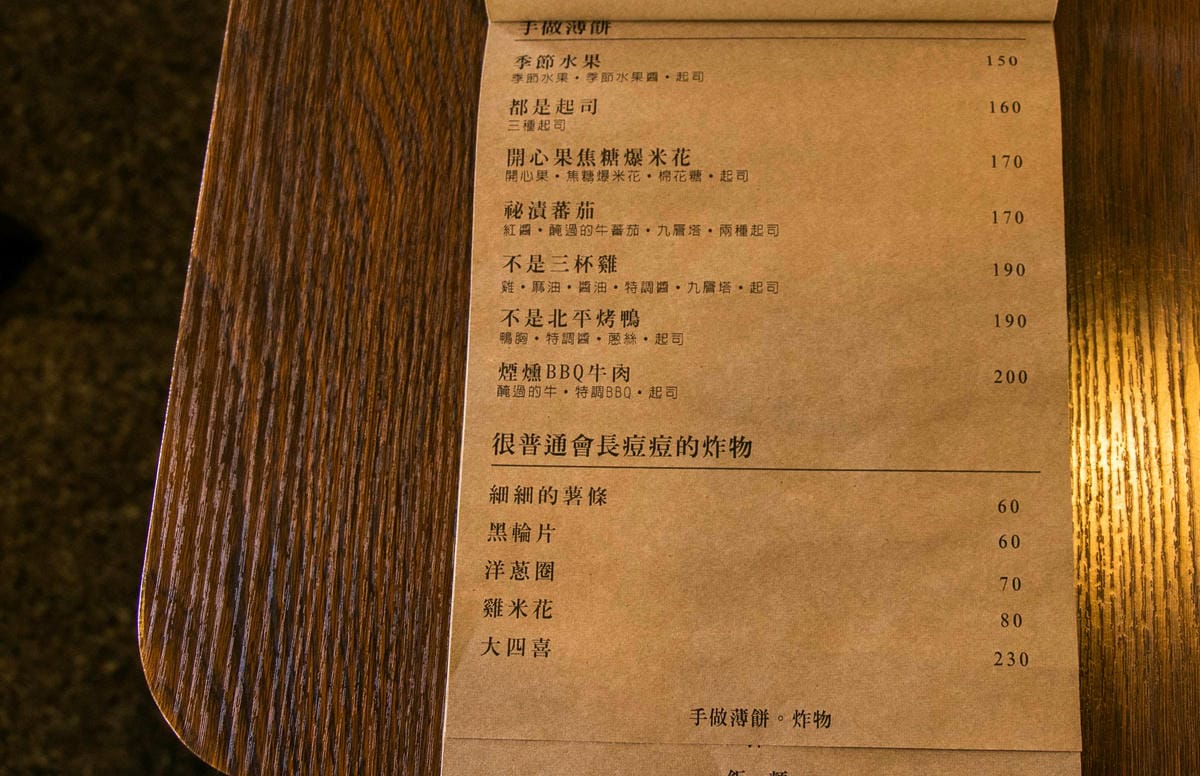 手做薄餅
季節水果 150
季節水果・季節水果醬・起司
都是起司 160
三種起司
開心果焦糖爆米花 170
開心果・焦糖爆米花・棉花糖・起司
祕漬蕃茄 170
紅醬・醃過的牛蕃茄・九層塔・兩種起司
不是三杯雞 190
雞・麻油・醬油・特調醬・九層塔・起司
不是北平烤鴨 190
鴨胸・特調醬・蔥絲・起司
煙燻BBQ牛肉 200
醃過的牛・特調BBQ・起司
很普通會長痘痘的炸物
細細的薯條 60
黑輪片 60
洋蔥圈 70
雞米花 80
大四喜 230
手做薄餅。炸物